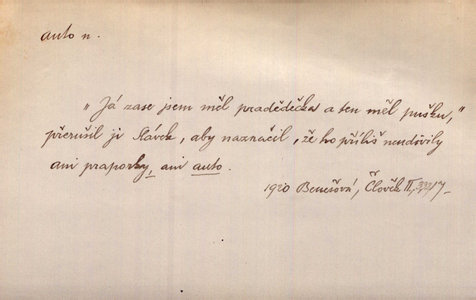 auto n.
„Já zase jsem měl pradědečka a ten měl pušku,"
přerušil ji Slávek, aby naznačil, že ho příliš neudivily
ani praporky, ani auto.
1920 Benešová, Člověk II, /7